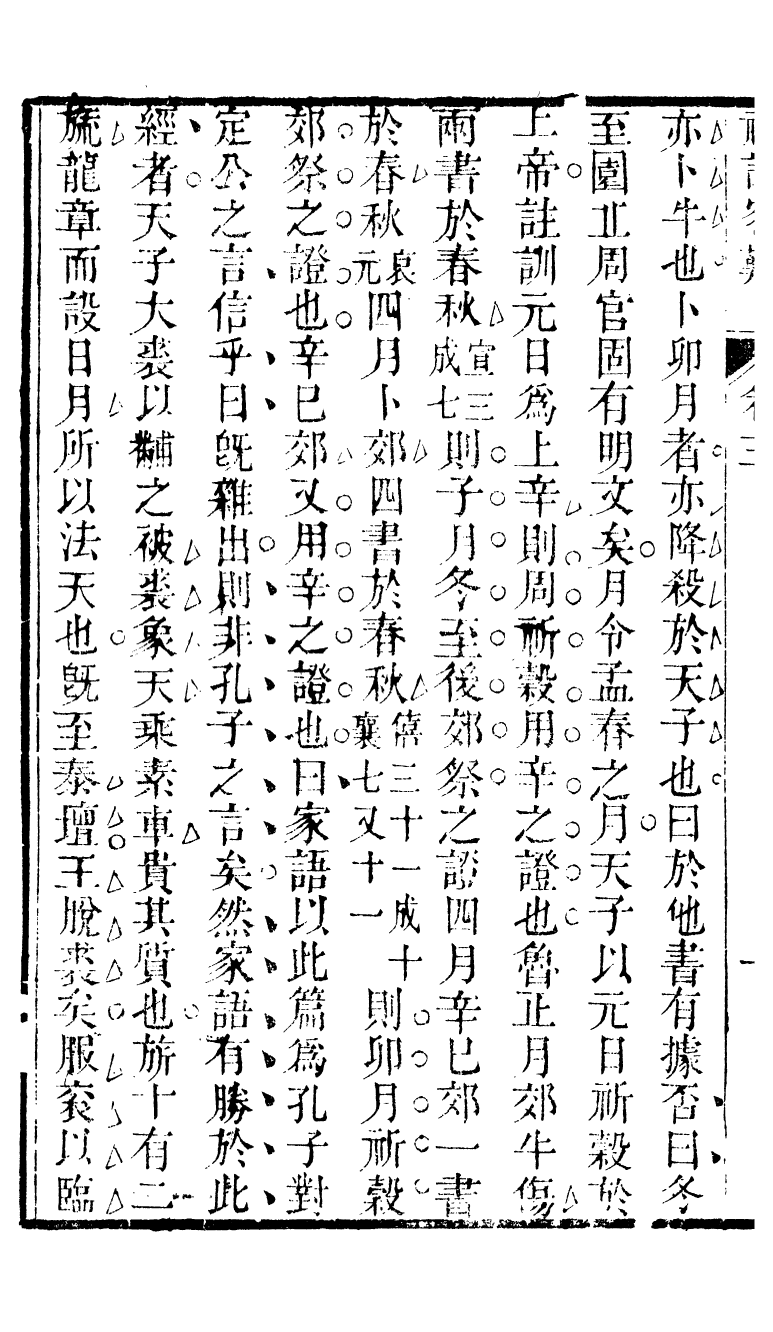 亦卜牛也卜卯月者亦降殺於天子也曰於他書有據否曰冬
至圜丘周官固有明文矣月令孟春之月天子以元日祈穀於
上帝註訓元日爲上辛則周祈穀用辛之證也魯正月郊牛傷
兩書於春秋宣三成七則子月冬至後郊祭之證四月辛巳郊一書
於春秋哀元四月卜郊四書於春秋僖三十一成十襄七又十一則卯月祈穀
郊祭之證也辛巳郊又用辛之證也曰家語以此篇爲孔子對
定公之言信乎曰旣雜出則非孔子之言矣然家語有勝於此
經者天子大裘以黼之被裘象天乘素車貴其質也旂十有二
旒龍章而設日月所以法天也旣至泰壇王脫裘矣服衮以臨